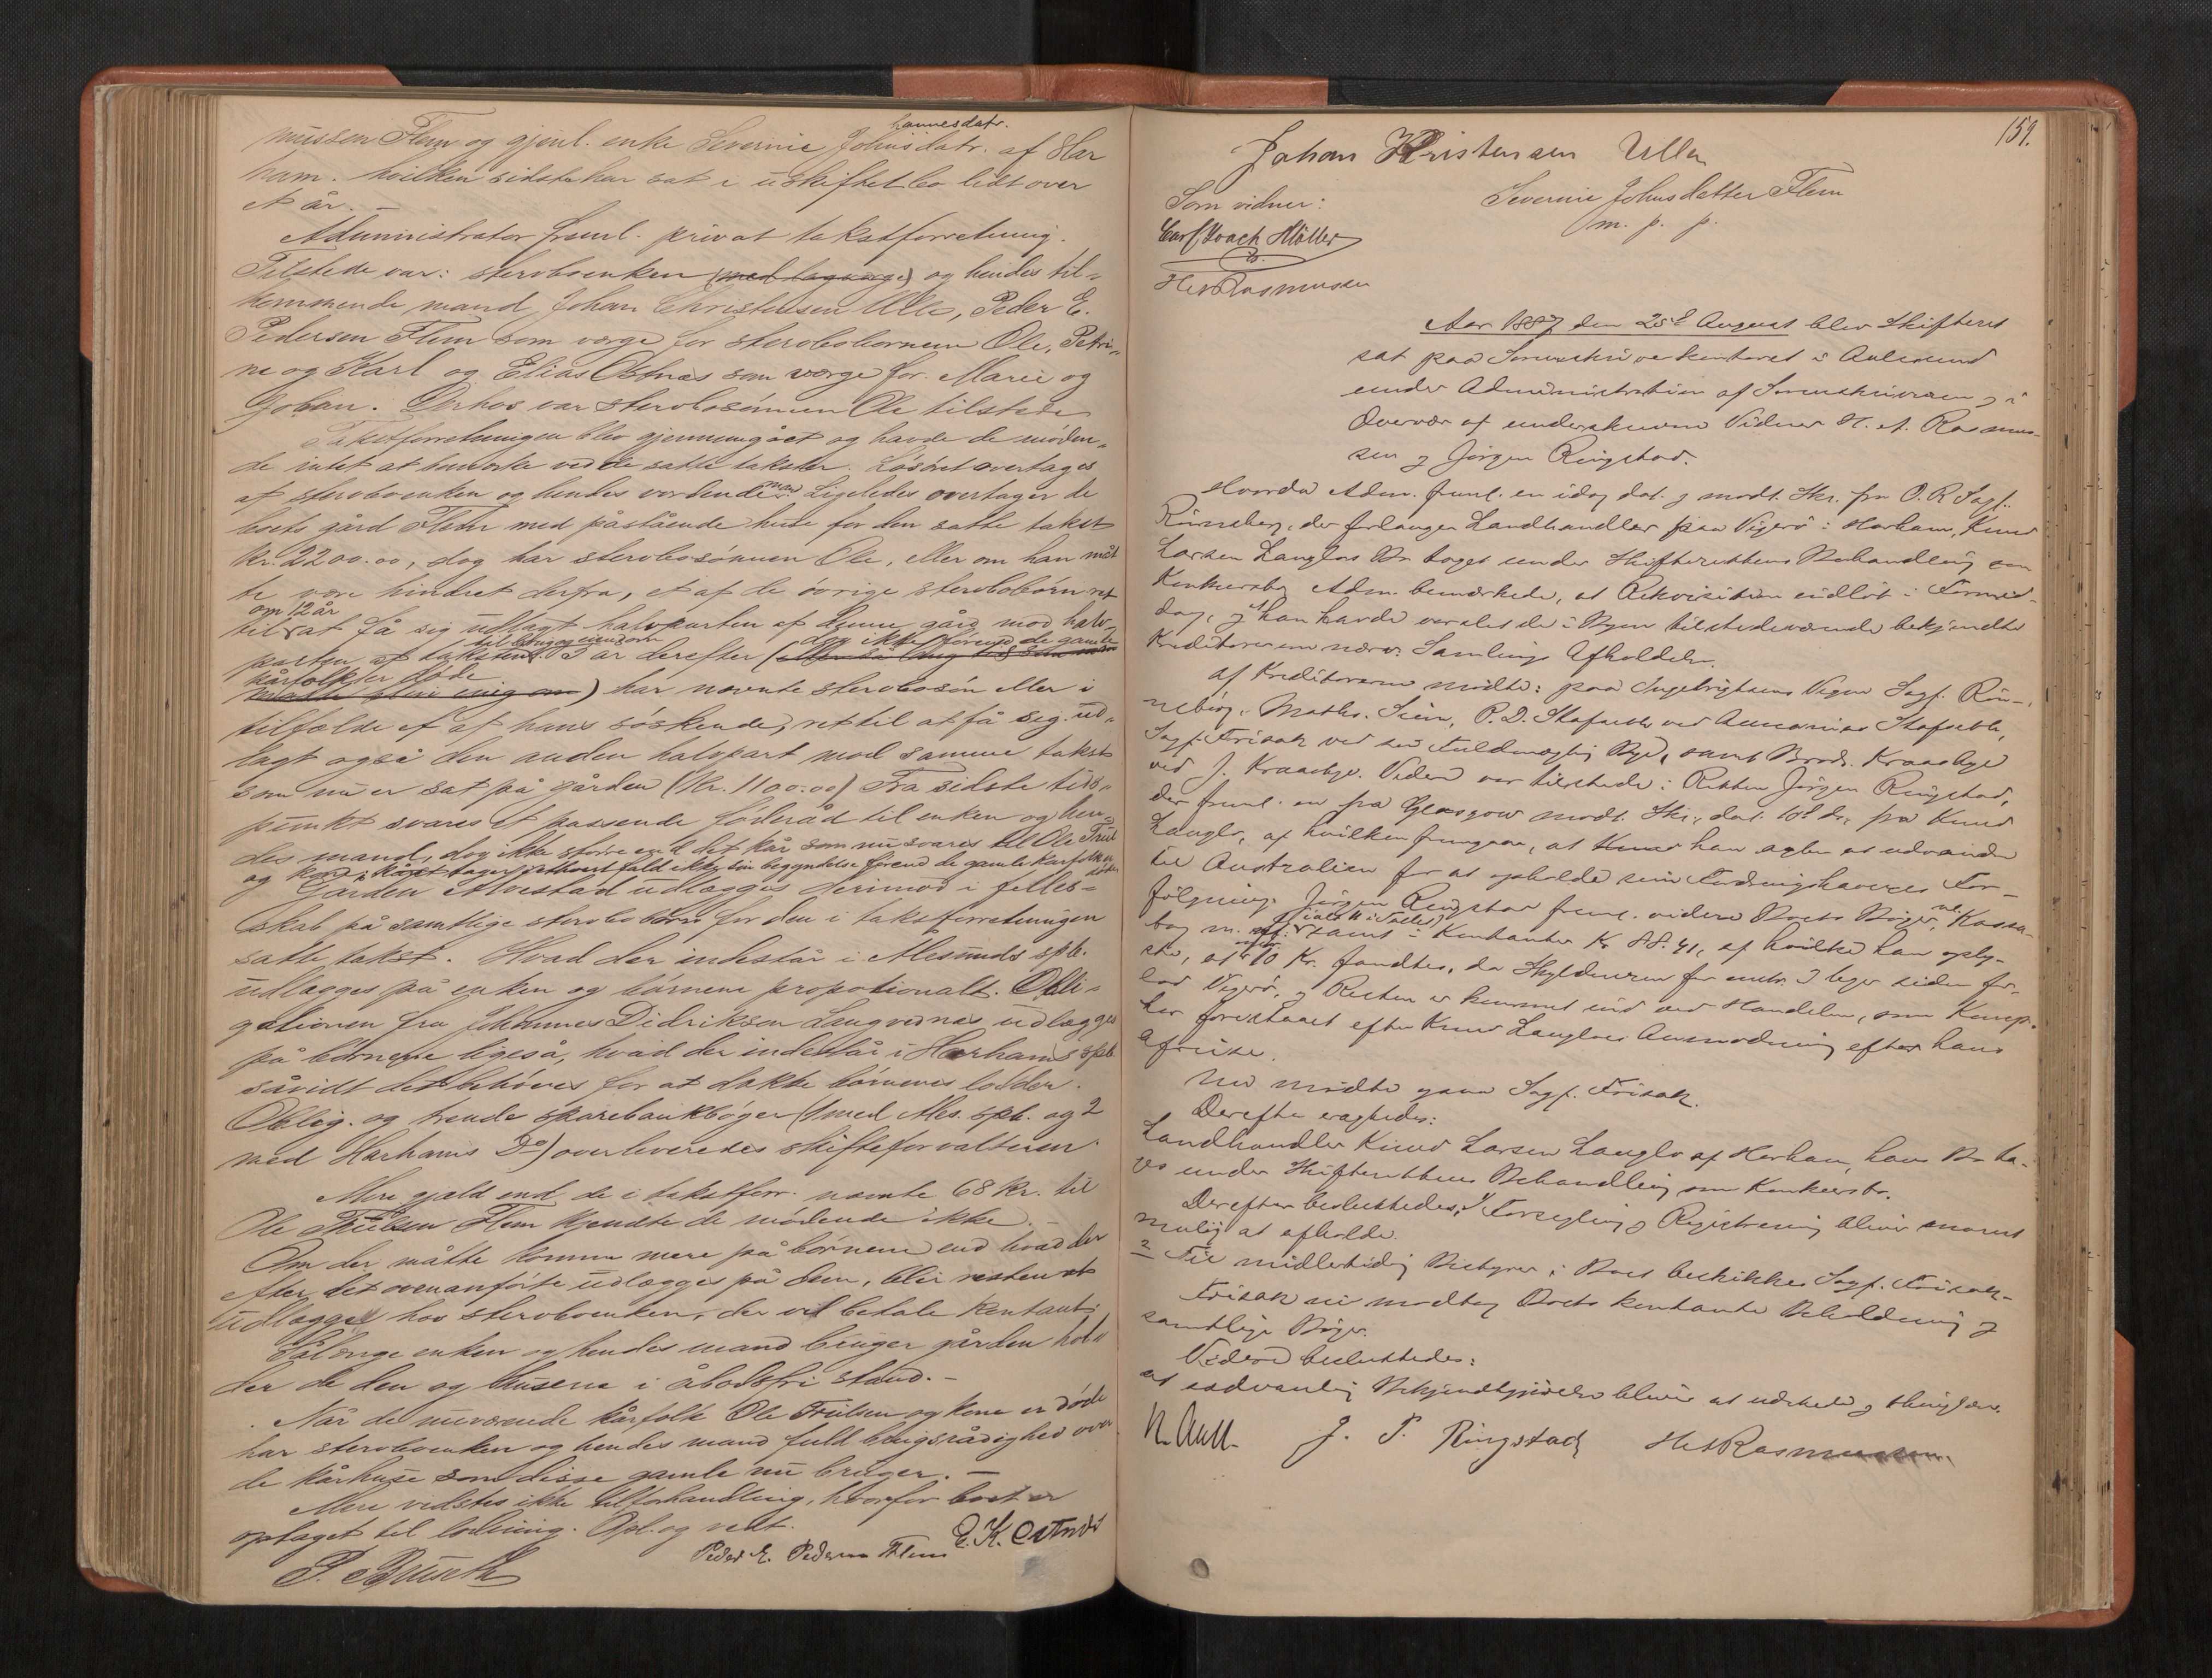 hannesdatr.
mussen Flem og gjenl. enke Severine Johnsdatr. af Har
ham. hvilken sidste har sat i uskiftet bo lidt over
et år. –
Administrator freml. privat takstforretning.
Tilstede var: stervboenken (med lagværge) og hendes til-
kommende mand Johan Christensen Ulla, Peder E.
Pedersen Flem som værge for stervbobørnene Ole, Petri-
ne og Karl og Elias Østnes som værge for Marie og
Johan. Derhos var stervbosønnen Ole tilstede
Takstforretningen blev gjennemgået og havde de møden-
de intet at bemærke ved de satte takster. Løsøret overtages
af stervboenken og hendes vordende man. Ligeledes overtager de
boets gård Flem med påstående huse for den satte takst
kr. 2200.00, dog har stervbosønnen Ole, eller om han måt
te være hindret derfra, et af de øvrige stervbobørn ret
om 12 år
til at få sig udlagt halvparten af denne gård mod halv-
til brug og eiendom dog ikke førend de gamle
parten af taksten. 3 år derefter
kårfolk er døde
) har nævnte stervbosøn eller i
tilfælde et af hans søskende, ret til at få sig ud-
lagt også den anden halvpart mod samme takst
som nu er sat på gården (Kr. 1100.00) Fra sidste tids-
punkt svares et passende føderåd til enken og hen-
des mand, dog ikke større end det kår som nu svares til Ole Truls
og tager i ethvert fald ikke sin begyndelse førend de gamle kårfolk er døde
Gården Alvestad udlægges derimod i felles-
skab på samtlige stervbobørn for den i takstforretningen
satte takst. Hvad der indestår i Alesunds spb.
udlægges på enken og børnene propotionalt. Obli-
gationen fra Johannes Didriksen Langvednes udlægges
på børnene ligeså, hvad der indestår i Harhams spb.
såvidt det behøves for at dække børnenes lodder.
Oblig. og trende sparebankbøger (1 med Ales. spb. og 2
med Harhams Do) overleveredes skifteforvalteren.
Mere gjæld end de i takstforr. nævnte 68 kr. til
Ole Trulsen Flem kjendte de mødende ikke. –
Om der måtte komme mere på børnene end hvad der
efter det ovenanførte udlægges på dem, blir resten at
udlægge hos stervboenken, der vil betale kontant.
Sålænge enken og hendes mand bruger gården hol-
der de den og husene i åbodsfri stand. –
Når de nuværende kårfolk Ole Trulsen og kone er døde
har stervboenken og hendes mand fuld brugsrådighed over
de kårhuse som disse gamle nu bruger. –
Mere vidstes ikke til forhandling, hvorfor boet er
optaget til lodning. Opl. og vedt.
Peder E. Pedersen Flem E. K. Østnes
P. Buseth
159.
Johan Kristensen Ulla
Severine Johnsdatter Flem
m. p. p.
Som vidner:
Carl Møller
H A Rasmussen
Aar 1887 den 25de August blev Skifteret
sat paa Sorenskriverkontoret i Aalesund
under Administration af Sorenskriveren og i
Overvær af underskrevne Vidner H. A. Rasmus-
sen og Jørgen Ringstad.
Hvorda Adm. freml. en idag dat. og modt. Skr. fra O. R. Sagf.
Rønneberg, der forlanger Landhandler paa Vigerø i Harham, Knud
Larsen Langlos Bo taget under Skifterettens Behandling som
Konkursbo. Adm. bemærkede, at Rekvisition indløb i Formid-
dag, og at han havde varslet de i Byen tilstedeværende bekjendte
Kreditorer om nærv. Samlings Afholdelse.
Af Kreditorerne mødte: paa Ingebrigtsens Vegne Sagf. Røn-
neberg, Maths. Siem, P. D. Stafseth ved Stafseth,
Sagf. Frisak ved sin Fuldmægtig Bye, samt Brødr. Kraasbye
ved J. Kraasbye. Videre var tilstede: Jørgen Ringstad,
der freml. en fra Glasgow modt. Skr., dat. 10de ds. fra Knud
Langlo, af hvilken fremgaar, at han agter at udvandre
til Australien for at opholde sine Fordringshaveres For-
følgning. Jørgen Ringstad freml. videre Boets Bøger, Kassa-
bog m. samt i Kontanter Kr. 88.41, af hvilke han oply-
ste, at 10 Kr. fandtes, da Skyldneren for omtr. 3 Uger siden for-
lod Vigerø, og Resten er kommet ind ved Handelen, som Komp.
har forestaaet efter Knud Langlos Anmodning efter hans
Afreise.
Nu mødte ogsaa Sagf. Frisak.
Derefter eragtedes:
Landhandler Knud Larsen Langlo af Harham, hans Bo ta-
ges under Skifterettens Behandling som Konkursbo.
Derefter besluttedes: 1) Forsegling og Registrering bliver snarest
mulig at afholde.
2 Til midlertidig Bestyrer i Boet beskikkes Sagf. Frisak.
Frisak modtog Boets kontante Beholdning og
samtlige Bøger.
Videre besluttedes:
at sedvanlig Bekjendtgjørelse bliver at udstede og thinglæse.
N. Aall. J. P. Ringstad H A Rasmussen.